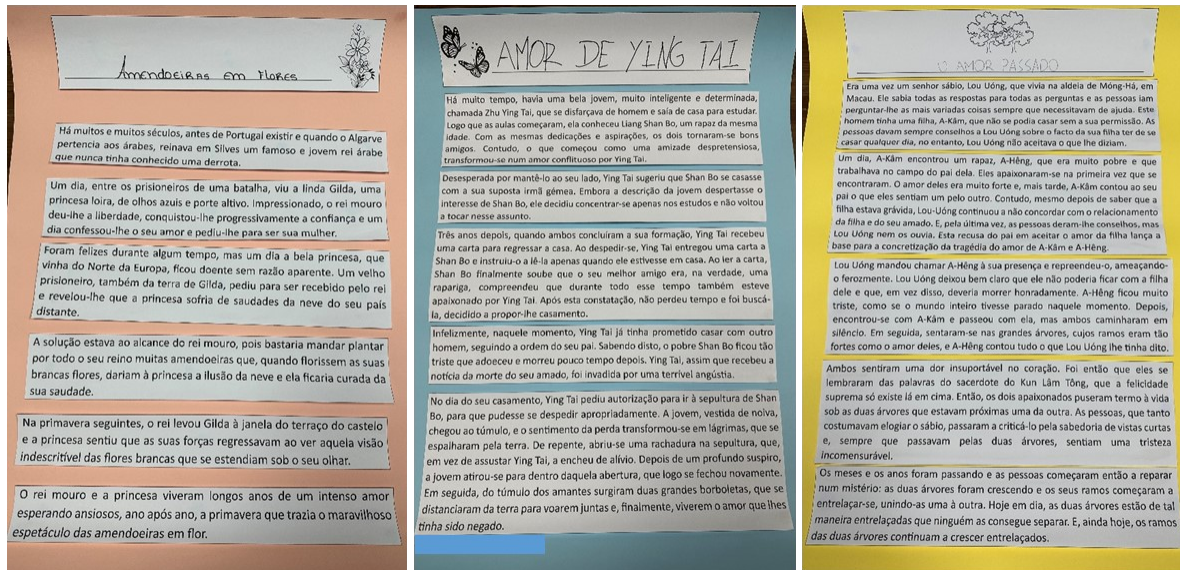 AMENDOEIRAS EM FLORES
Há muitos e muitos séculos, antes de Portugal existir e quando o Algarve
pertencia aos árabes, reinava em Silves um famoso e jovem rei árabe
que nunca tinha conhecido uma derrota.
Um dia, entre os prisioneiros de uma batalha, viu a linda Gilda, uma
princesa loira, de olhos azuis e porte altivo. Impressionado, o rei mouro
deu-lhe a liberdade, conquistou-lhe progressivamente a confiança e um
dia confessou-lhe o seu amor e pediu-lhe para ser sua mulher.
Foram felizes durante algum tempo, mas um dia a bela princesa, que
vinha do Norte da Europa, ficou doente sem razão aparente. Um velho
prisioneiro, também da terra de Gilda, pediu para ser recebido pelo rei
e revelou-lhe que a princesa sofria de saudades da neve do seu país
distante.
A solução estava ao alcance do rei mouro, pois bastaria mandar plantar
por todo o seu reino muitas amendoeiras que, quando florissem as suas
brancas flores, dariam à princesa a ilusão da neve e ela ficaria curada da
sua saudade.
Na primavera seguintes, o rei levou Gilda à janela do terraço do castelo
e a princesa sentiu que as suas forças regressavam ao ver aquela visão
indescritível das flores brancas que se estendiam sob o seu olhar.
O rei mouro e a princesa viveram longos anos de um intenso amor
esperando ansiosos, ano após ano, a primavera que trazia o maravilhoso
espetáculo das amendoeiras em flor.
AMOR DE YING TAI
Há muito tempo, havia uma bela jovem, muito inteligente e determinada,
chamada Zhu Ying Tai, que se disfarça de homem e saía de casa para estudar.
Logo que as aulas começaram, ela conheceu Liang Shan Bo, um rapaz da mesma
idade. Com as mesmas dedicações e aspirações, os dois tornaram-se bons
amigos. Contudo, o que começou como uma amizade despretensiosa,
transformou-se num amor conflituoso por Ying Tai.
Desesperada por mantê-lo ao seu lado, Ying Tai sugeriu que Shan Bo se casasse
com a sua suposta irmã gémea. Embora a descrição da jovem despertasse o
interesse de Shan Bo, ele decidiu concentrar-se apenas nos estudos e não voltou
a tocar nesse assunto.
Três anos depois, quando ambos concluíram a sua formação, Ying Tai recebeu
uma carta para regressar a casa. Ao despedir-se, Ying Tai entregou uma carta a
Shan Bo e instruiu-o a lê-la apenas quando ele estivesse em casa. Ao ler a carta,
Shan Bo finalmente soube que o seu melhor amigo era, na verdade, uma
rapariga, compreendeu que durante todo esse tempo também esteve
apaixonado por Ying Tai. Após esta constatação, não perdeu tempo e foi buscá-
la, decidido a propor-lhe casamento.
Infelizmente, naquele momento, Ying Tai já tinha prometido casar com outro
homem, seguindo a ordem do seu pai. Sabendo disto, o pobre Shan Bo ficou tão
triste que adoeceu e morreu pouco tempo depois. Ying Tai, assim que recebeu a
notícia da morte do seu amado, foi invadida por uma terrível angústia.
No dia do seu casamento, Ying Tai pediu autorização para ir à sepultura de Shan
Bo, para que pudesse se despedir apropriadamente. A jovem, vestida de noiva,
chegou ao túmulo, e o sentimento da perda transformou-se em lágrimas, que se
espalharam pela terra. De repente, abriu-se uma rachadura na sepultura, que,
em vez de assustar Ying Tai, a encheu de alívio. Depois de um profundo suspiro,
a jovem atirou-se para dentro daquela abertura, que logo se fechou novamente.
Em seguida, do túmulo dos amantes surgiram duas grandes borboletas, que se
distanciaram da terra para voarem juntas e, finalmente, viverem o amor que lhes
tinha sido negado.
O AMOR PASSADO
Era uma vez um senhor sábio, Lou Uóng, que vivia na aldeia de Móng-Há, em
Macau. Ele sabia todas as respostas para todas as perguntas e as pessoas iam
perguntar-lhe as mais variadas coisas sempre que necessitavam de ajuda. Este
homem tinha uma filha, A-Kâm, que não se podia casar sem a sua permissão. As
pessoas davam sempre conselhos a Lou Uóng sobre o facto da sua filha ter de se
casar qualquer dia, no entanto, Lou Uóng não aceitava o que lhe diziam.
Um dia, A-Kâm encontrou um rapaz, A-Hêng, que era muito pobre e que
trabalhava no campo do pai dela. Eles apaixonaram-se na primeira vez que se
encontraram. O amor deles era muito forte e, mais tarde, A-Kâm contou ao seu
pai o que eles sentiam um pelo outro. Contudo, mesmo depois de saber que a
filha estava grávida, Lou-Uóng continuou a não concordar com o relacionamento
da filha e do seu amado. E, pela última vez, as pessoas deram-lhe conselhos, mas
Lou Uóng nem os ouvia. Esta recusa do pai em aceitar o amor da filha lança a
base para a concretização da tragédia do amor de A-Kâm e A-Hêng.
Lou Uóng mandou chamar A-Hêng à sua presença e repreendeu-o, ameaçando-
o ferozmente. Lou Uóng deixou bem claro que ele não poderia ficar com a filha
dele e que, em vez disso, deveria morrer honradamente. A-Hêng ficou muito
triste, como se o mundo inteiro tivesse parado naquele momento. Depois,
encontrou-se com A-Kâm e passeou com ela, mas ambos caminharam em
silêncio. Em seguida, sentaram-se nas grandes árvores, cujos ramos eram tão
fortes como o amor deles, e A-Hêng contou tudo o que Lou Uóng lhe tinha dito.
Ambos sentiram uma dor insuportável no coração. Foi então que eles se
lembraram das palavras do sacerdote do Kun Lâm Tông, que a felicidade
suprema só existe lá em cima. Então, os dois apaixonados puseram termo à vida
sob as duas árvores que estavam próximas uma da outra. As pessoas, que tanto
costumavam elogiar o sábio, passaram a criticá-lo pela sabedoria de vistas curtas
e, sempre que passavam pelas duas árvores, sentiam uma tristeza
incomensurável.
Os meses e os anos foram passando e as pessoas começaram então a reparar
num mistério: as duas árvores foram crescendo e os seus ramos começaram a
entrelaçar-se, unindo-as uma à outra. Hoje em dia, as duas árvores estão de tal
maneira entrelaçadas que ninguém as consegue separar. E, ainda hoje, os ramos
das duas árvores continuam a crescer entrelaçados.